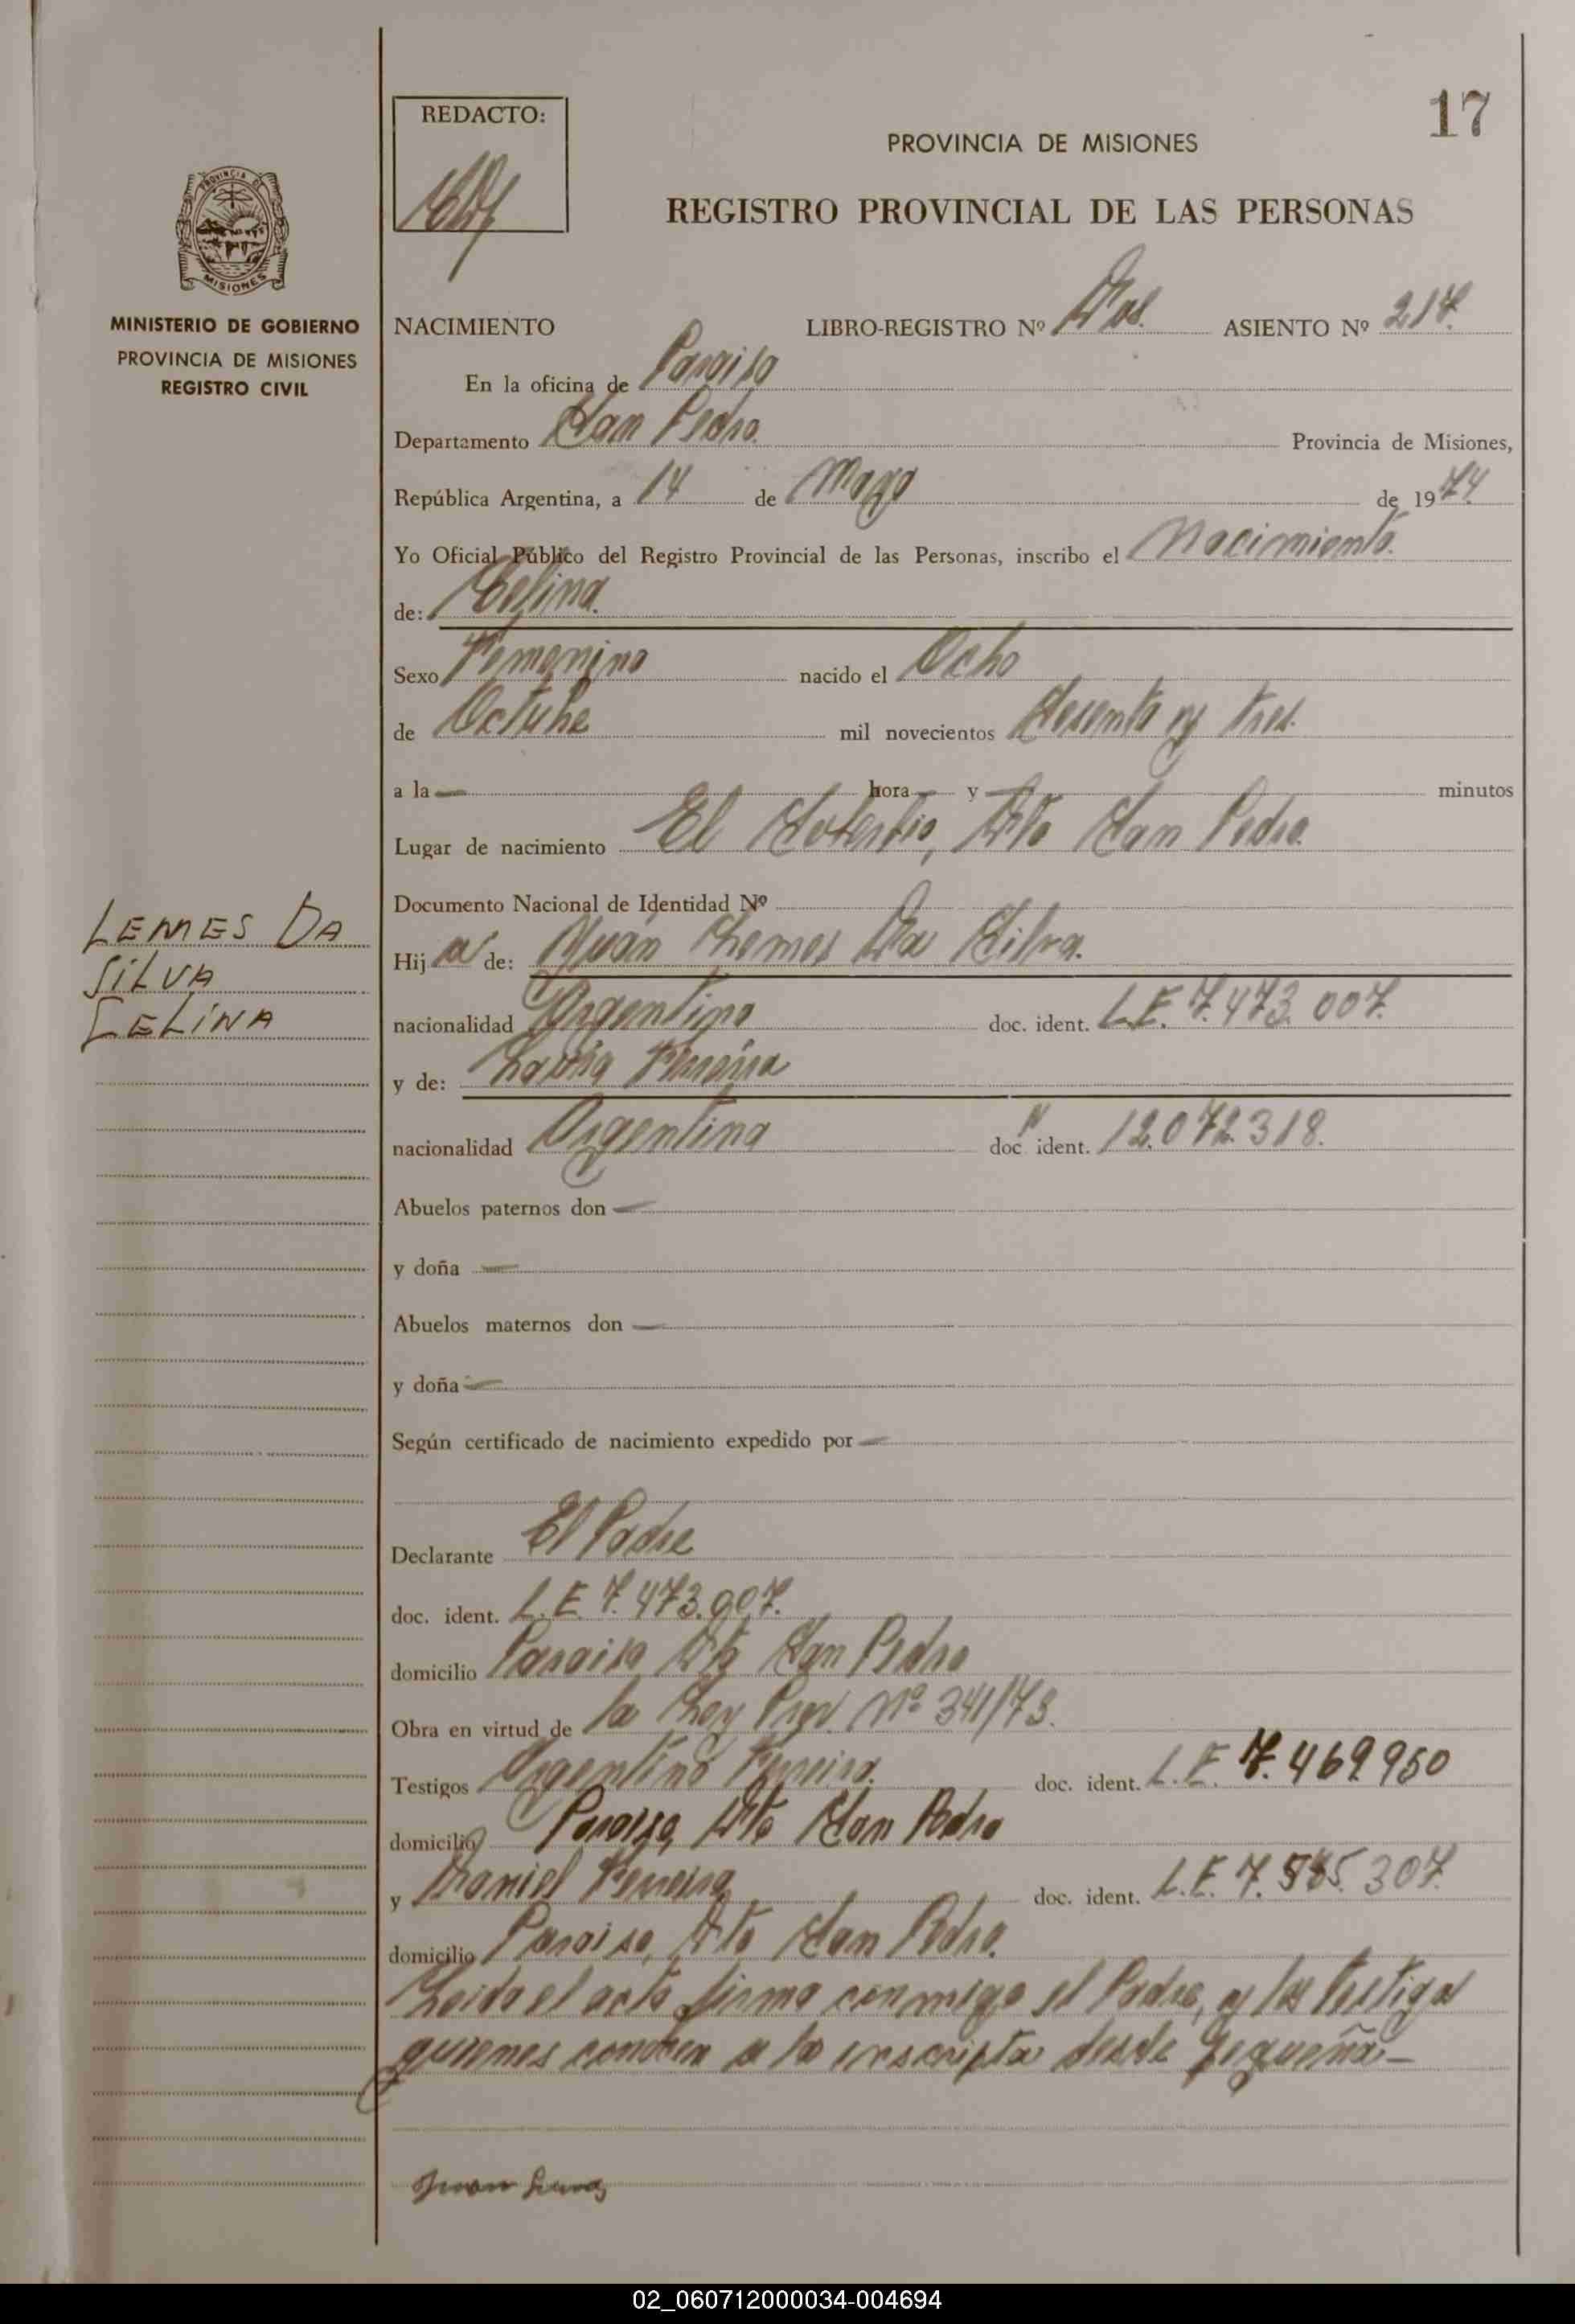 17
REDACTO:
PROVINCIA DE MISIONES
REGISTRO PROVINCIAL DE LAS PERSONAS
PROVINCIA DE
MISIONES
MINISTERIO DE GOBIERNO
PROVINCIA DE MISIONES
REGISTRO CIVIL
NACIMIENTO LIBRO-REGISTRO Nº Dos. ASIENTO Nº 217.
En la oficina de Paraiso
Departamento San Pedro. Provincia de Misiones,
República Argentina, a 14 de Mayo de 1974.
Yo Oficial Público del Registro Provincial de las Personas, inscribo el Nacimiento.
de: Celina.
Sexo Femenino nacido el Ocho
de Octubre mil novecientos Sesenta y tres.
a la — hora — y — minutos
Lugar de nacimiento El Soberbio, Dto San Pedro.
Documento Nacional de Identidad Nº
LEMES DA
SILVA
CELINA
Hij a de: Juan Lemes Da Silva.
nacionalidad Argentino doc. ident. L.E. 7.473.007.
y de: Ferreira
nacionalidad Argentina doc. ident. 12.072.318.
Abuelos paternos don —
y doña —
Abuelos maternos don —
y doña —
Según certificado de nacimiento expedido por —
Declarante El Padre
doc. ident. L.E. 7.473.007.
domicilio Paraiso, Dto San Pedro
Obra en virtud de la Ley Prov. Nº 341/73.
Testigos Argentino Ferreira. doc. ident. L.E. 7.469.950
domicilio Paraiso, Dto San Pedro
y Daniel Ferreira doc. ident. L.E. 7.585.307.
domicilio Paraiso, Dto San Pedro.
Leida el acta firma conmigo el Padre, y los testigos
quienes conocen a la inscripta desde pequeña.—
Juan Lemes
02_060712000034-004694